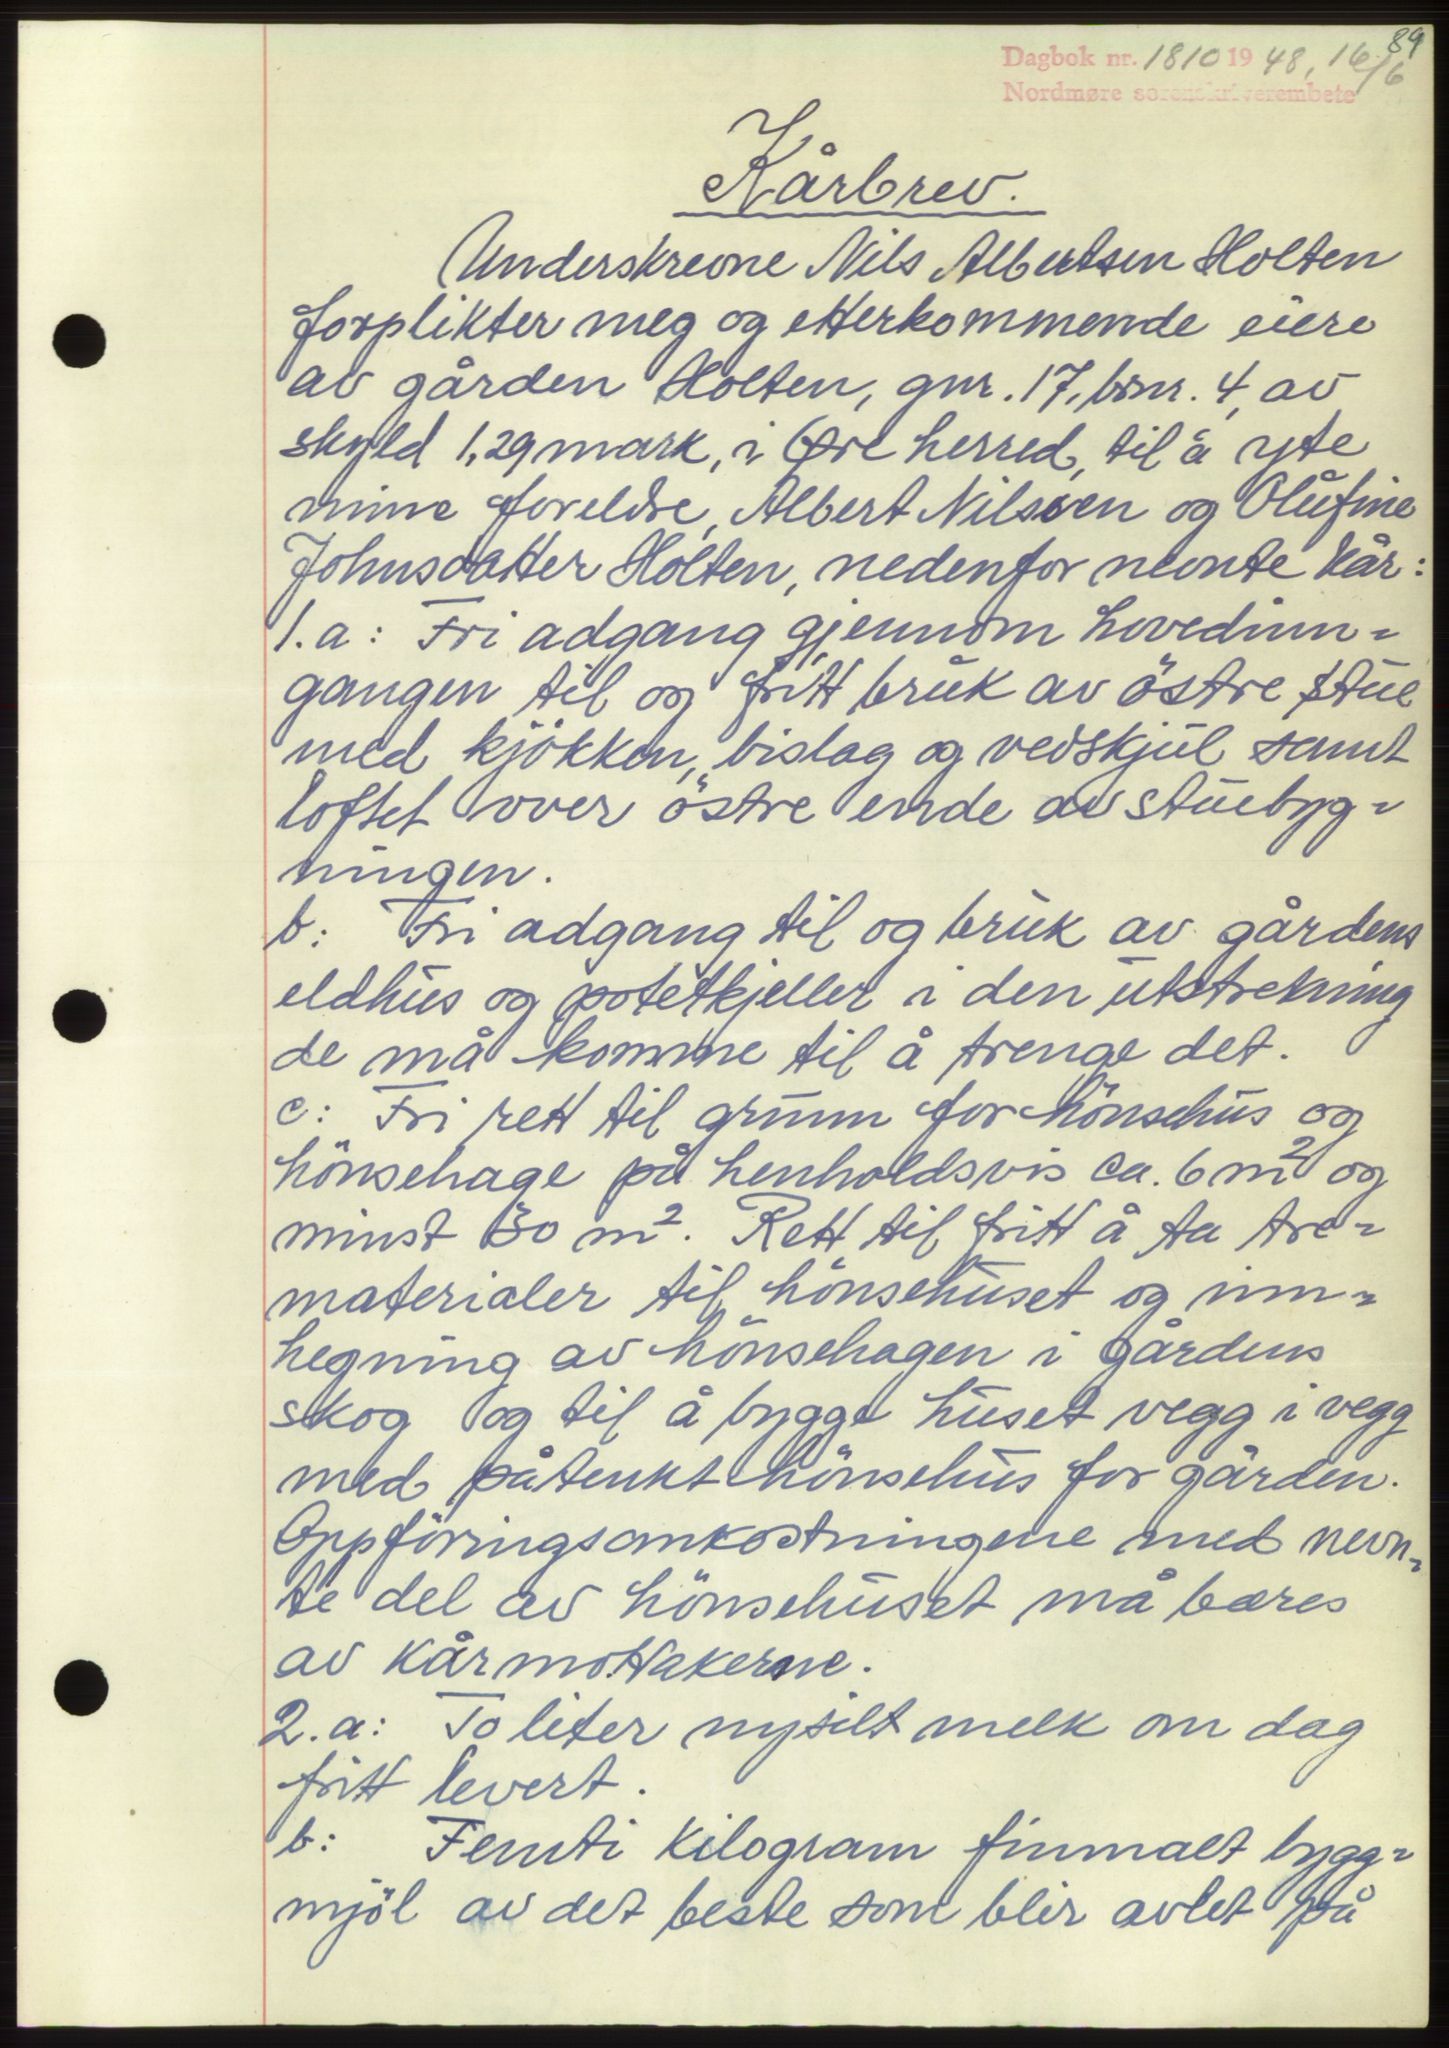 89
Dagbok nr. 1810 19 48, 16/6
Nordmøre sorenskriverembete
Kårbrev.
Underskrevne Nils Albertsen Holten
forplikter meg og etterkommende eiere
av gården Holten, gnr. 17, brnr. 4, av
skyld 1,29 mark, i Øre herred, til å yte
mine foreldre, Albert Nilssen og Olufine
Johnsdatter Holten, nedenfor nevnte kår:
1. a: Fri adgang gjennom hovedinn-
gangen til og fritt bruk av östre stue
med kjökken, bislag og vedskjul samt
loftet over östre ende av stuebyg-
ningen.
b: Fri adgang til og bruk av gårdens
eldhus og potetkjeller i den utstrekning
de må komme til å trenge det.
c: Fri rett til grunn for hönsehus og
hönsehage på henholdsvis ca. 6 m² og
minst 30 m². Rett til fritt å ta tre-
materialer til hönsehuset og inn-
hegning av hönsehagen i gårdens
skog og til å bygge huset vegg i vegg
med påtenkt hönsehus for gården.
Oppföringsomkostningene med nevn-
te del av hönsehuset må bæres
av kårmottakerne.
2. a: To liter nysilt melk om dag
fritt levert.
b: Femti kilogram finmalt bygg-
mjöl av det beste som blir avlet på